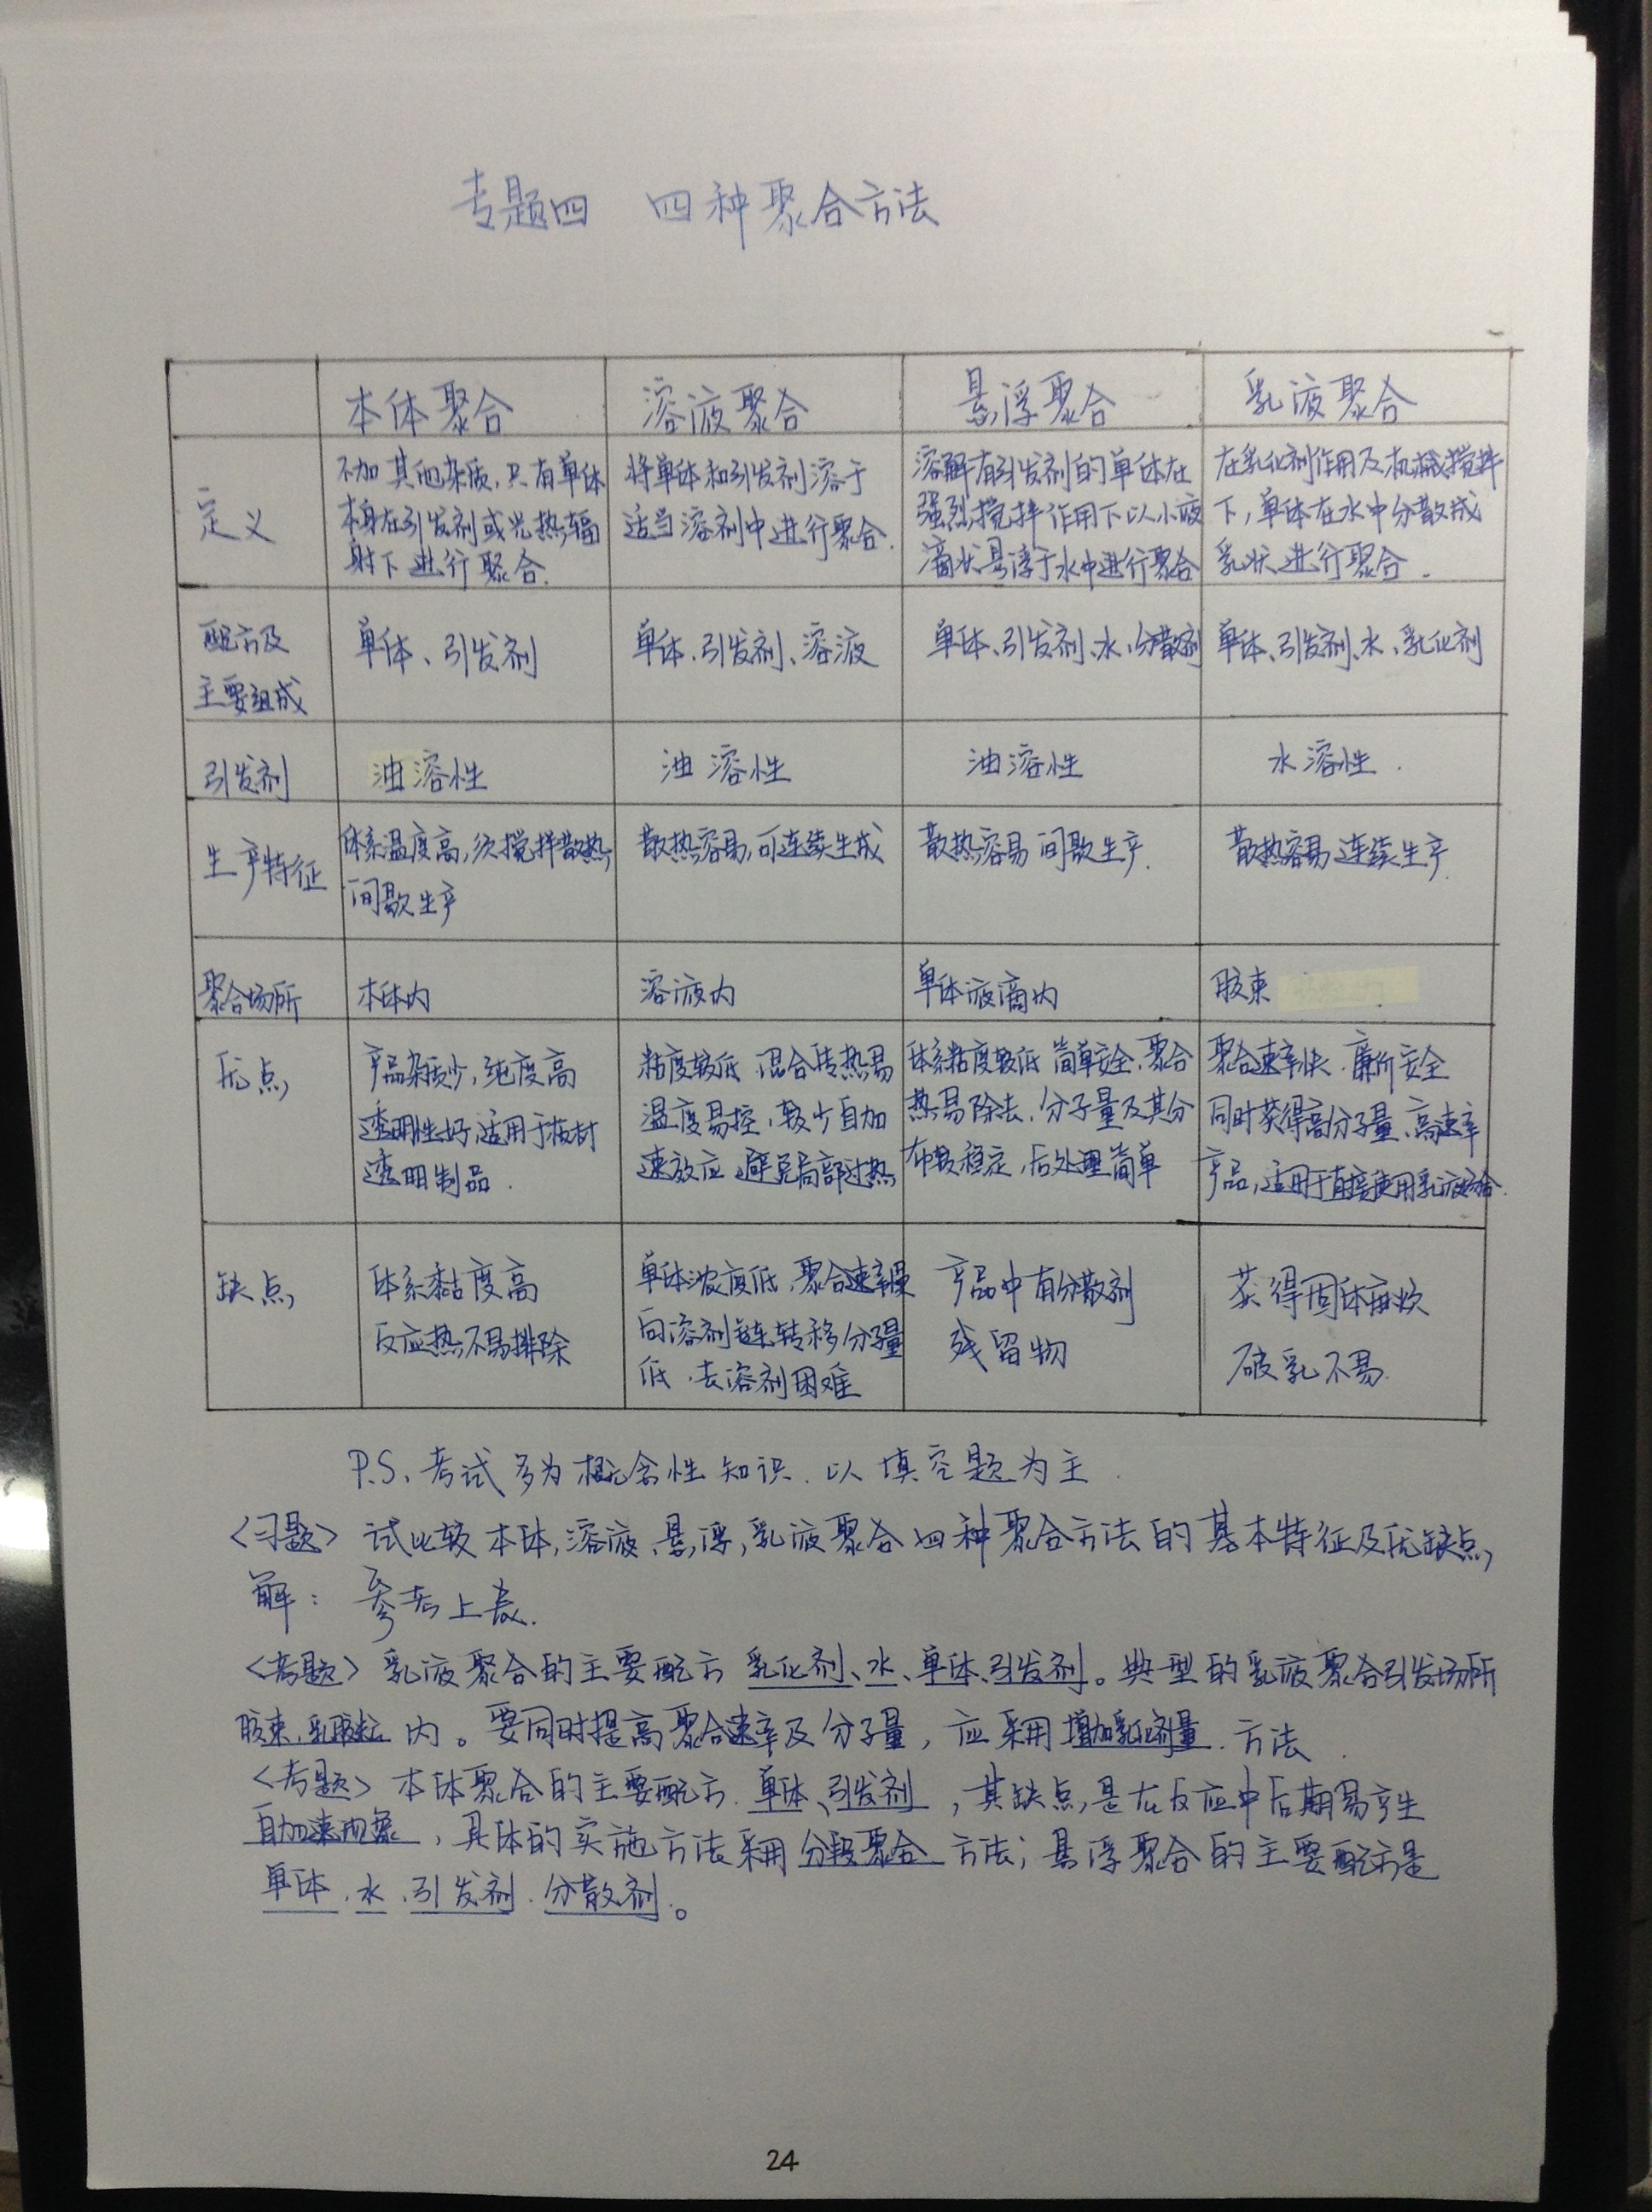 专题四 四种聚合方法
本体聚合 溶液聚合 悬浮聚合 乳液聚合
定义
不加其他杂质,只有单体
本身在引发剂或光热辐
射下进行聚合.
将单体和引发剂溶于
适当溶剂中进行聚合.
溶解有引发剂的单体在
强烈搅拌作用下以小液
滴状悬浮于水中进行聚合
在乳化剂作用及机械搅拌
下,单体在水中分散成
乳状进行聚合.
配方及
主要组成
单体、引发剂
单体、引发剂、溶液
单体、引发剂、水、分散剂
单体、引发剂、水、乳化剂
引发剂 油溶性 油溶性 油溶性 水溶性.
生产特征
体系温度高,须搅拌散热,
间歇生产
散热容易,可连续生成
散热容易 间歇生产.
散热容易 连续生产.
聚合场所 本体内 溶液内 单体液滴内 胶束
优点
产品杂质少,纯度高
透明性好,适用于板材
透明制品.
粘度较低 混合传热易
温度易控,较少自加
速效应 避免局部过热
体系粘度较低 简单安全,聚合
热易除去,分子量及其分
布较稳定,后处理简单
聚合速率快.廉价安全
同时获得高分子量、高速率
产品,适用于直接使用乳液场合.
缺点
体系黏度高
反应热不易排除
单体浓度低,聚合速率慢
向溶剂链转移分子量
低.去溶剂困难
产品中有分散剂
残留物
获得固体麻烦
破乳不易.
P.S. 考试多为概念性知识.以填空题为主.
<习题> 试比较本体,溶液、悬浮,乳液聚合四种聚合方法的基本特征及优缺点,
解: 参考上表.
<考题> 乳液聚合的主要配方 乳化剂、水、单体、引发剂。典型的乳液聚合引发场所
胶束,乳胶粒 内。要同时提高聚合速率及分子量,应采用 增加乳化剂量 方法.
<考题> 本体聚合的主要配方 单体、引发剂,其缺点是在反应中后期易产生
自加速现象,具体的实施方法采用 分段聚合 方法;悬浮聚合的主要配方是
单体、水、引发剂、分散剂。
24